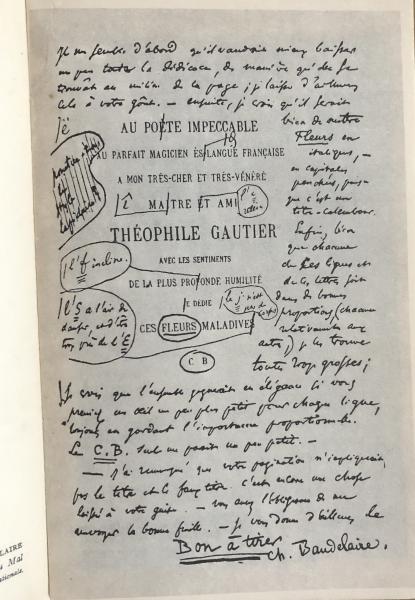 Il me semble d'abord qu'il vaudrait mieux baisser
un peu toute la dédicace, de manière qu'elle se
trouvât au milieu de la page; je laisse d'ailleurs
cela à votre goût. — ensuite, je crois qu'il serait
bien de mettre
Fleurs en
italiques, —
en capitales
penchées, puis-
que c'est un
titre-calembour.
Enfin, bien
que chacune
de ces lignes et
de ces lettres soit
dans de bonnes
proportions (chacune
relativement aux
autres,) je les trouve
toutes trop grosses;
AU POËTE IMPECCABLE
AU PARFAIT MAGICIEN ÈS LANGUE FRANÇAISE
A MON TRÈS-CHER ET TRÈS-VÉNÉRÉ
MAITRE ET AMI
THÉOPHILE GAUTIER
AVEC LES SENTIMENTS
DE LA PLUS PROFONDE HUMILITÉ
JE DÉDIE
CES FLEURS MALADIVES
C B
l'f incline.
l'S a l'air de
Je crois que l'ensemble gagnerait en élégance si vous
preniez un œil un peu plus petit pour chaque ligne,
toujours en gardant l'importance proportionnelle.
Le C.B. seul me paraît un peu petit. —
— J'ai remarqué que votre pagination n'impliquait
pas le titre et le faux titre. c'est encore une chose
laissé à votre goût. — vous aurez l'obligeance de me
renvoyer la bonne feuille. — Je vous donne d'ailleurs le
Bon à tirer
Ch. Baudelaire.
LAIRE
Mal
ationale.